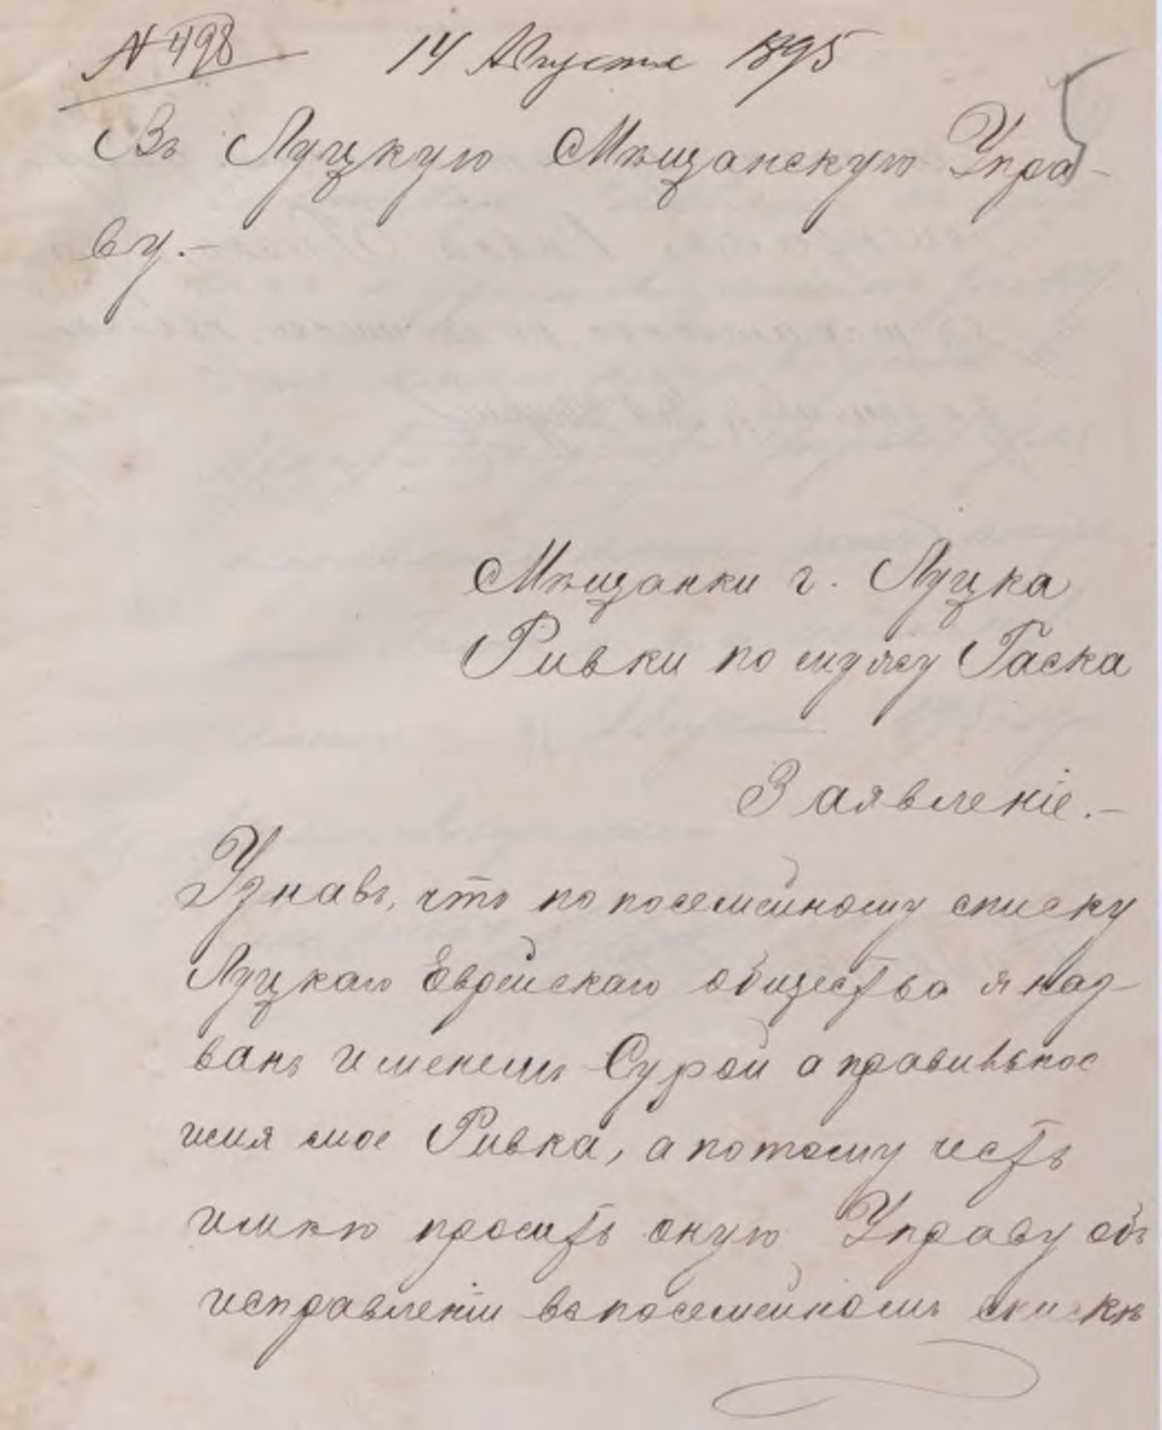 № 498 14 Августа 1895
Въ Луцкую Мѣщанскую Упра-
ву.-
Мѣщанки г. Луцка
Ривки по мужу Гаска
Заявленіе.-
Узнавъ, что по посемейному списку
Луцкаго Еврейскаго общества я наз-
вана именемъ Сурой а правильное
имя мое Ривка, а потому честь
имѣю просить оную Управу объ
исправленіи въ посемейномъ спискѣ